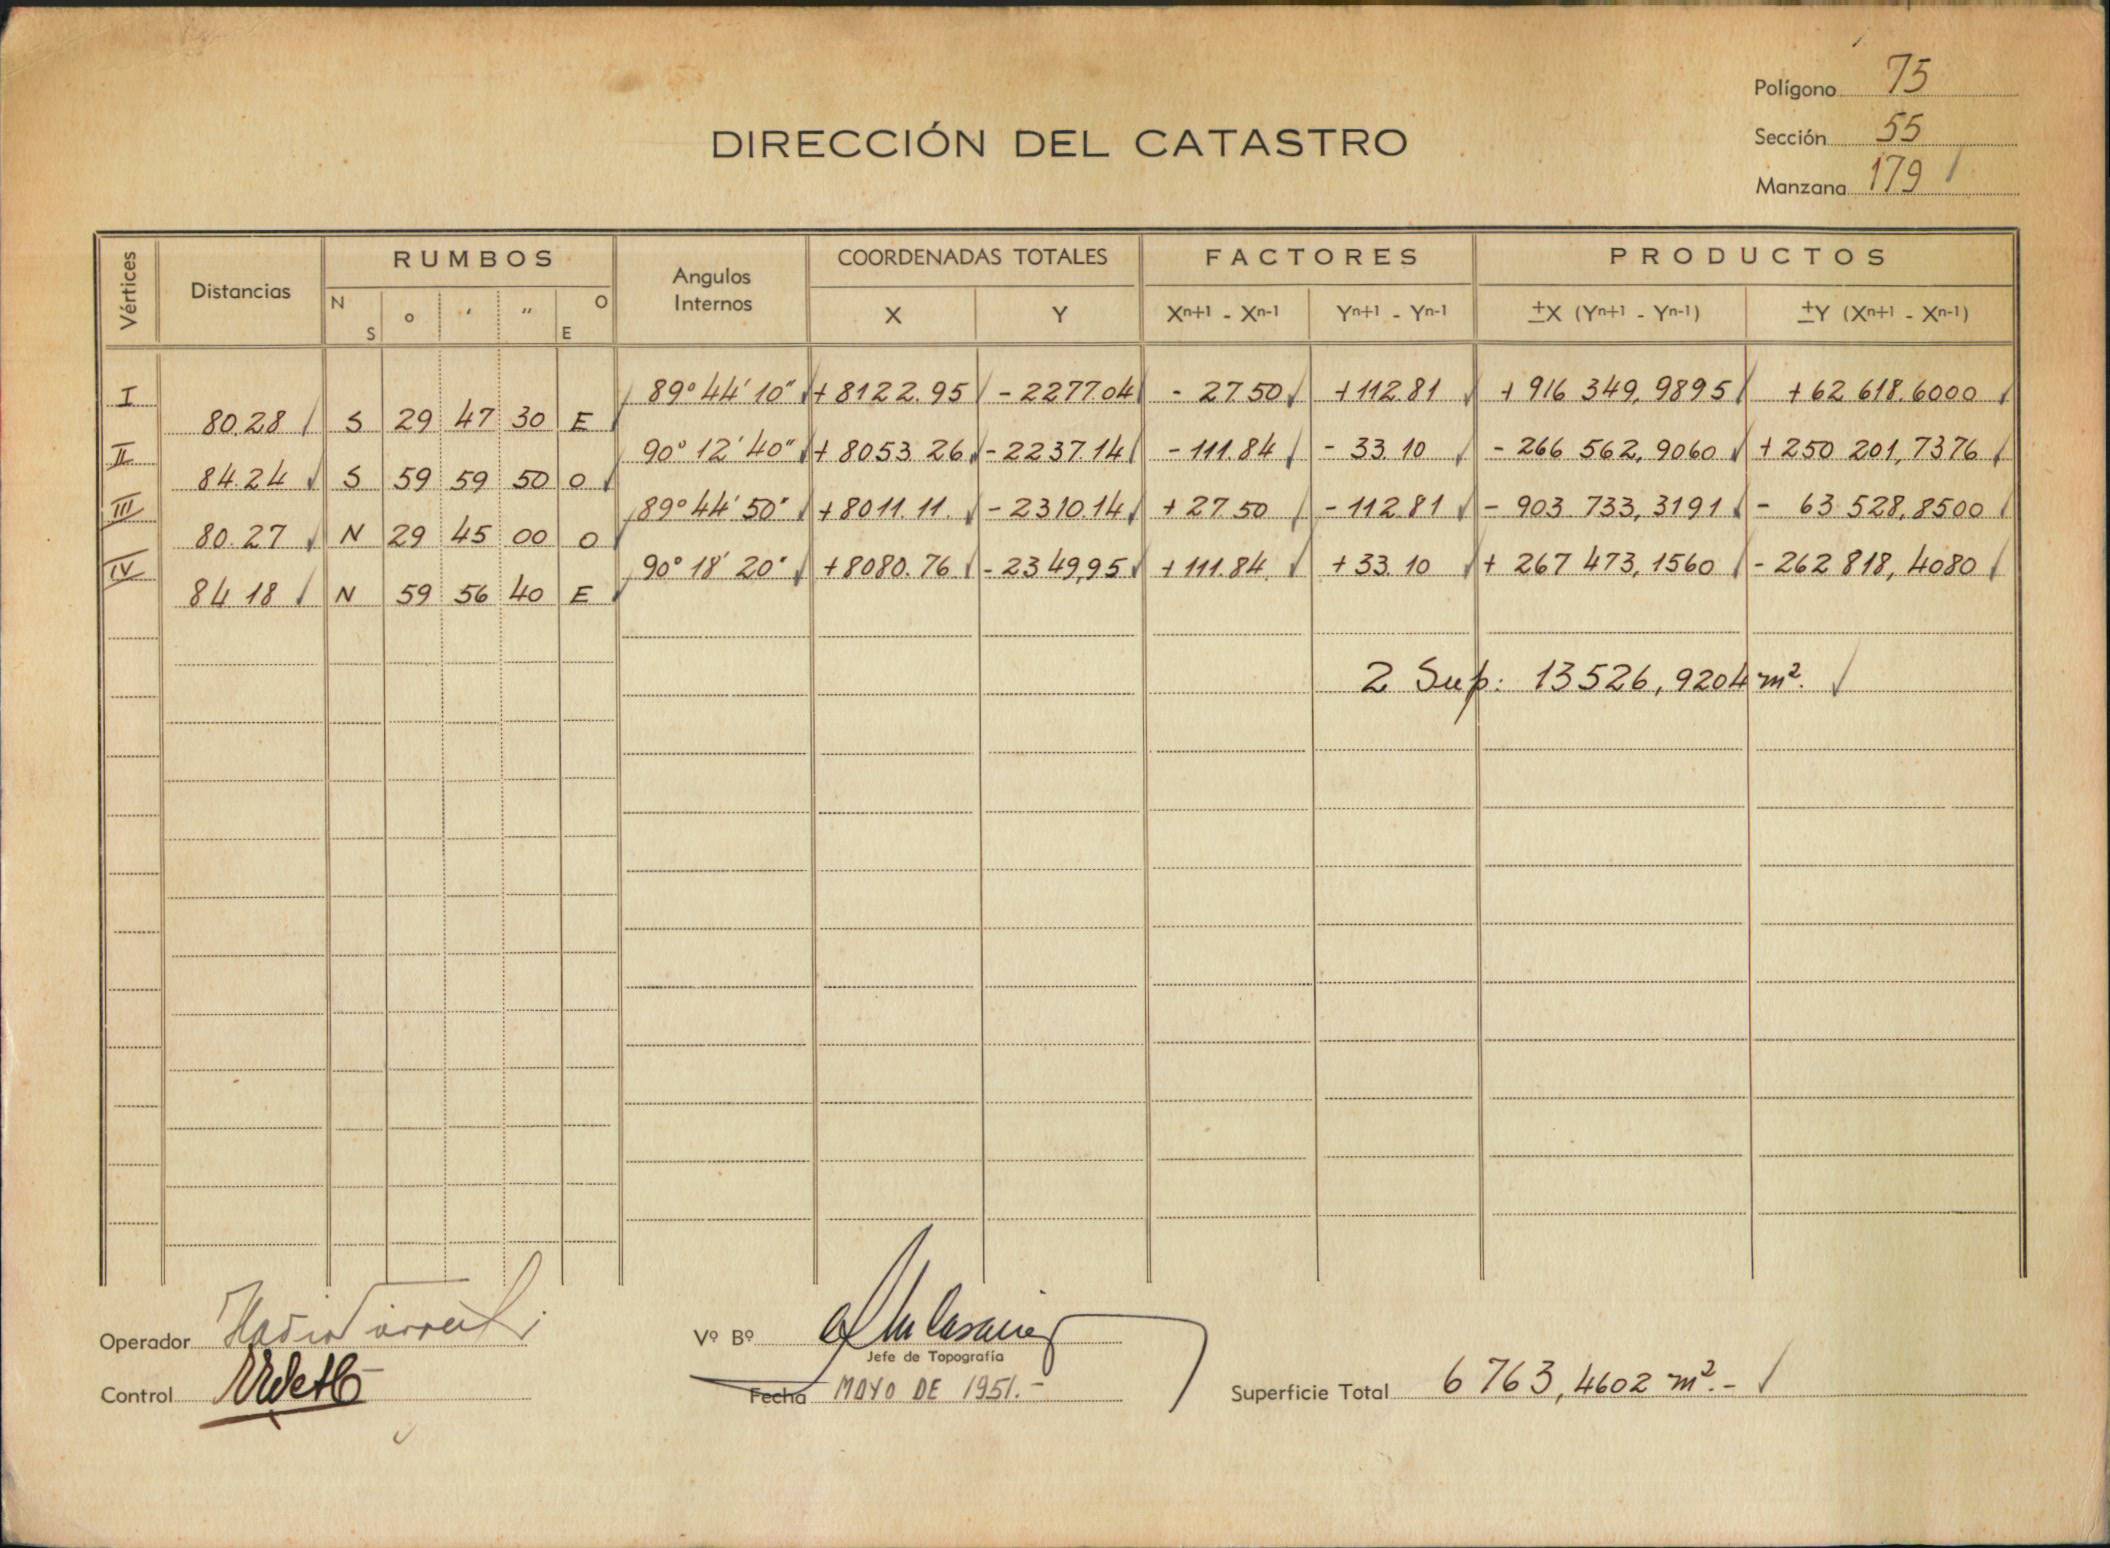 Polígono 75
DIRECCIÓN DEL CATASTRO
Sección 55
Manzana 179
Vértices Distancias RUMBOS Angulos Internos COORDENADAS TOTALES FACTORES PRODUCTOS
N S o ′ ″ O E X Y Xn+1 - Xn-1 Yn+1 - Yn-1 ±X (Yn+1 - Yn-1) ±Y (Xn+1 - Xn-1)
I 89° 44′ 10″ +8122.95 -2277.04 -27.50 +112.81 +916 349,9895 +62 618.6000
80.28 S 29 47 30 E
II 90° 12′ 40″ +8053.26 -2237.14 -111.84 -33.10 -266 562,9060 +250 201,7376
84.24 S 59 59 50 O
III 89° 44′ 50″ +8011.11 -2310.14 +27.50 -112.81 -903 733,3191 -63 528,8500
80.27 N 29 45 00 O
IV 90° 18′ 20″ +8080.76 -2349,95 +111.84 +33.10 +267 473,1560 -262 818,4080
84.18 N 59 56 40 E
2 Sup: 13526,9204 m².
Operador
Vº Bº
Jefe de Topografía
Control
Fecha MAYO DE 1951.-
Superficie Total 6763,4602 m².-